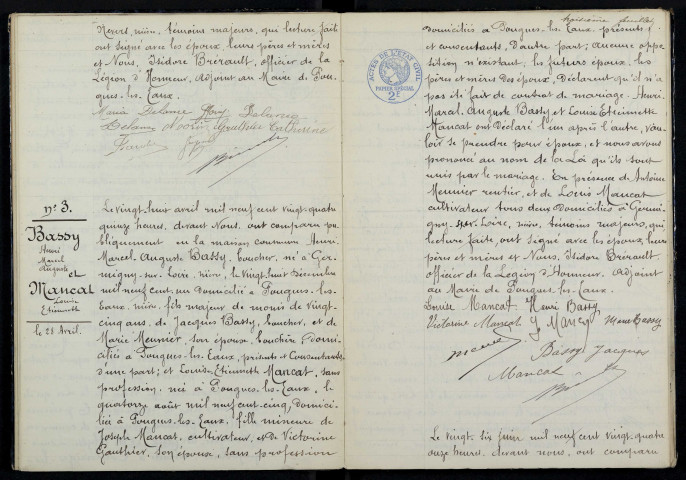 Heurs, nièvre, témoins majeurs, qui lecture faite
ont signé avec les époux, leurs pères et mères
et Nous, Isidore Brérault, officier de la
Légion d'Honneur, Adjoint au Maire de Pou-
gues-les-Eaux.
Maria Delance
Delance
Gauthier Catherine
n° 3.
Bassy
Henri
Marcel
Auguste
et
Mancat
Louise
Etiennette
le 28 Avril.
Le vingt-huit avril mil neuf cent vingt-quatre
quinze heures, devant Nous, ont comparu pu-
bliquement en la maison commune Henri
Marcel Auguste Bassy, boucher, né à Ger-
migny-sur-Loire, nièvre, le vingt-huit Décembre
mil neuf cent un domicilié à Pougues-les-
Eaux, nièvre, fils majeur de moins de vingt-
cinq ans, de Jacques Bassy, boucher, et de
Marie Meunier, son épouse, bouchère, domi-
ciliés à Pougues-les-Eaux, présents et Consentants
d'une part; et Louise Etiennette Mancat, sans
profession, née à Pougues-les-Eaux, le
quatorze août mil neuf cent cinq, domici-
liée à Pougues-les-Eaux, fille mineure de
Joseph Mancat, cultivateur, et de Victorine
Gauthier, son épouse, sans profession
troisième feuillet
ACTES DE L'ETAT CIVIL
PAPIER SPÉCIAL
2F
domiciliés à Pougues-les-Eaux, présents
et consentants, d'autre part; aucune oppo-
sition n'existant, les futurs époux, les
père et mère des époux, Déclarent qu'il n'a
pas été fait de contrat de mariage. Henri
Marcel Auguste Bassy et Louise Etiennette
Mancat ont déclaré l'un après l'autre, vou-
loir se prendre pour époux, et nous avons
prononcé au nom de la Loi qu'ils sont
unis par le mariage. En présence de Antoine
Meunier rentier, et de Louis Mancat
cultivateur tous deux domiciliés à Germi-
gny-sur-Loire, nièvre, témoins majeurs, qui
lecture faite, ont signé avec les époux, leurs
père et mères et Nous, Isidore Brérault,
officier de la Légion d'Honneur, Adjoint
au Maire de Pougues-les-Eaux.
Louise Mancat Henri Bassy
Victorine Mancat J Mancat Marie Bassy
Bassy Jacques
Mancat
Le vingt-six juin mil neuf cent vingt-quatre
onze heures, devant nous, ont comparu